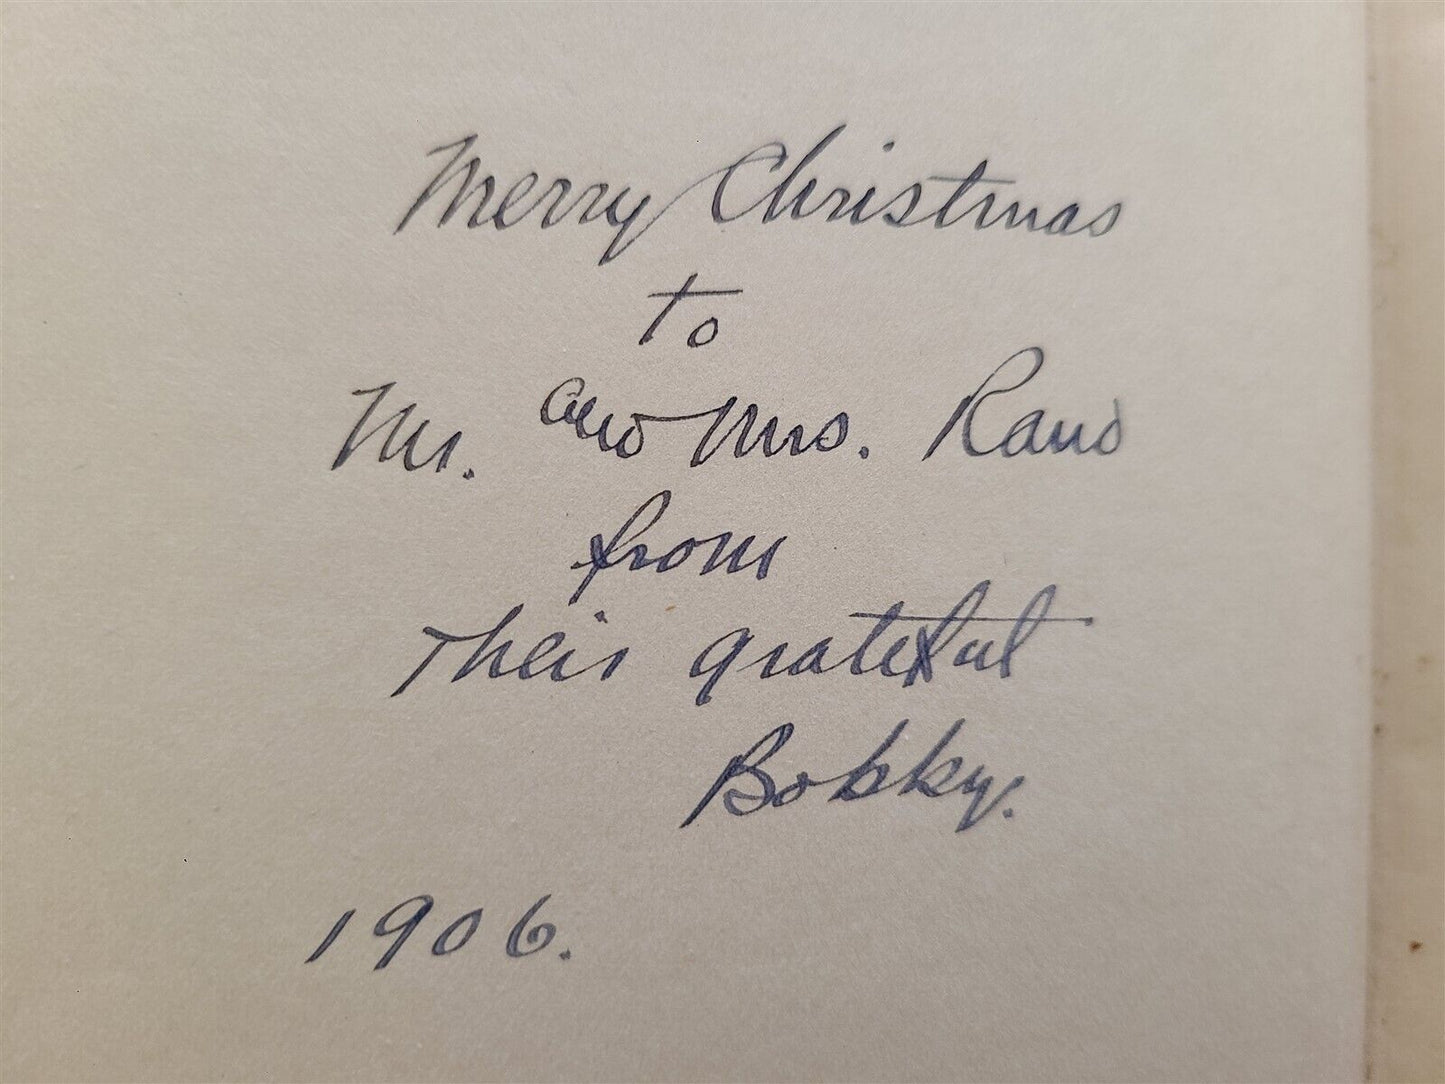 Merry Christmas
to
Mr. and Mrs. Rand
from
Their grateful
Bobby.
1906.